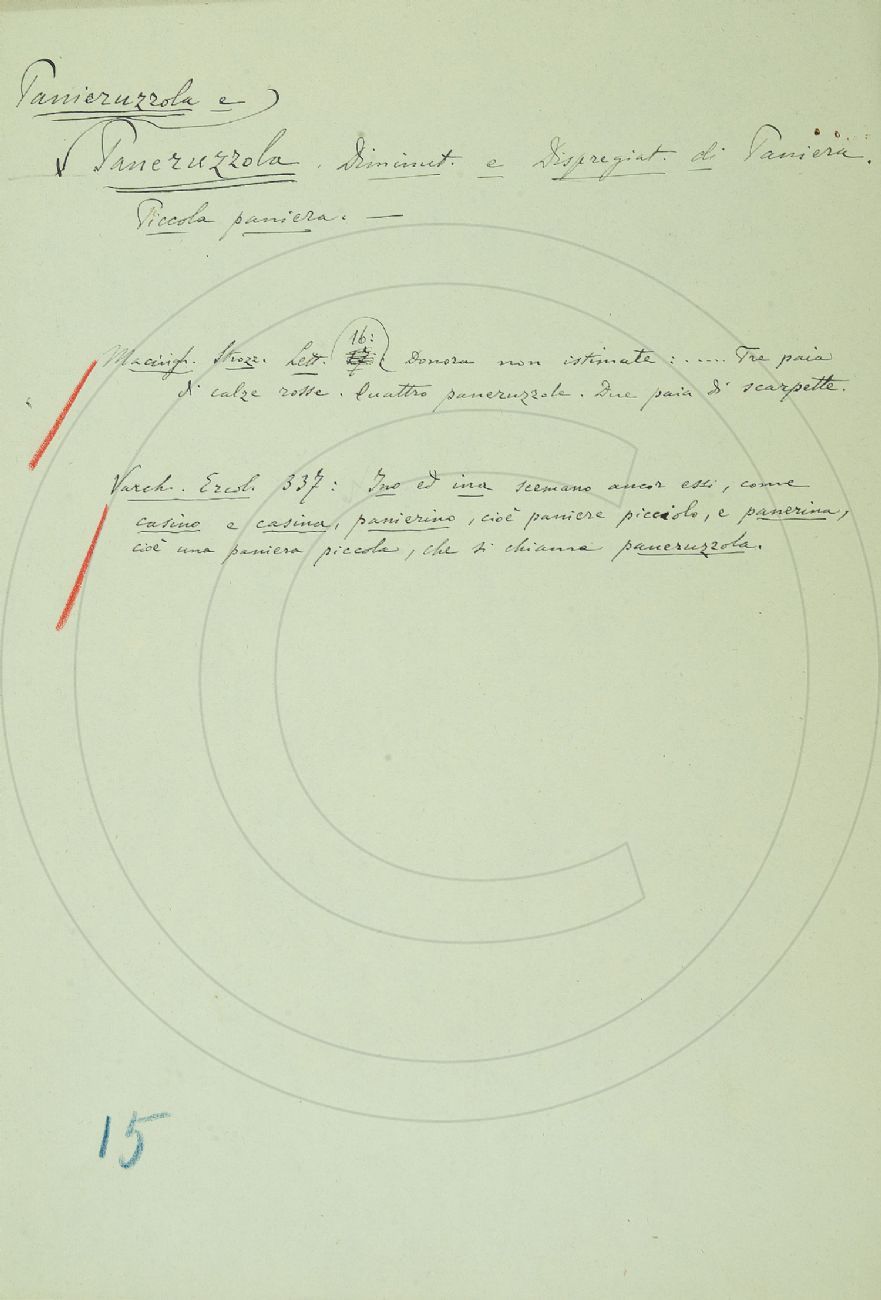 Panieruzzola e
Paneruzzola. Diminut. e Dispregiat. di Paniera.
Piccola paniera. —
16:
Macingh. Strozz. Lett. Donora non istimate: ..... Tre paia
di calze rosse. Quattro paneruzzole. Due paia di scarpette.
Varch. Ercol. 337: Ino ed ina scemano ancor essi, come
casino e casina, panierino, cioè paniere picciolo, e panerina,
cioè una paniera piccola, che si chiama paneruzzola.
15